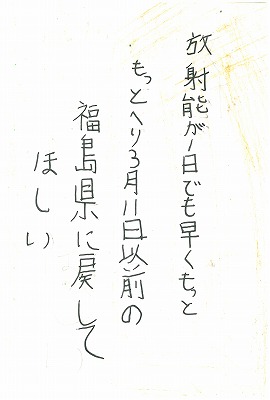 放射能が1日でも早くもっと
もっとへり3月11日以前の
福島県に戻して
ほしい